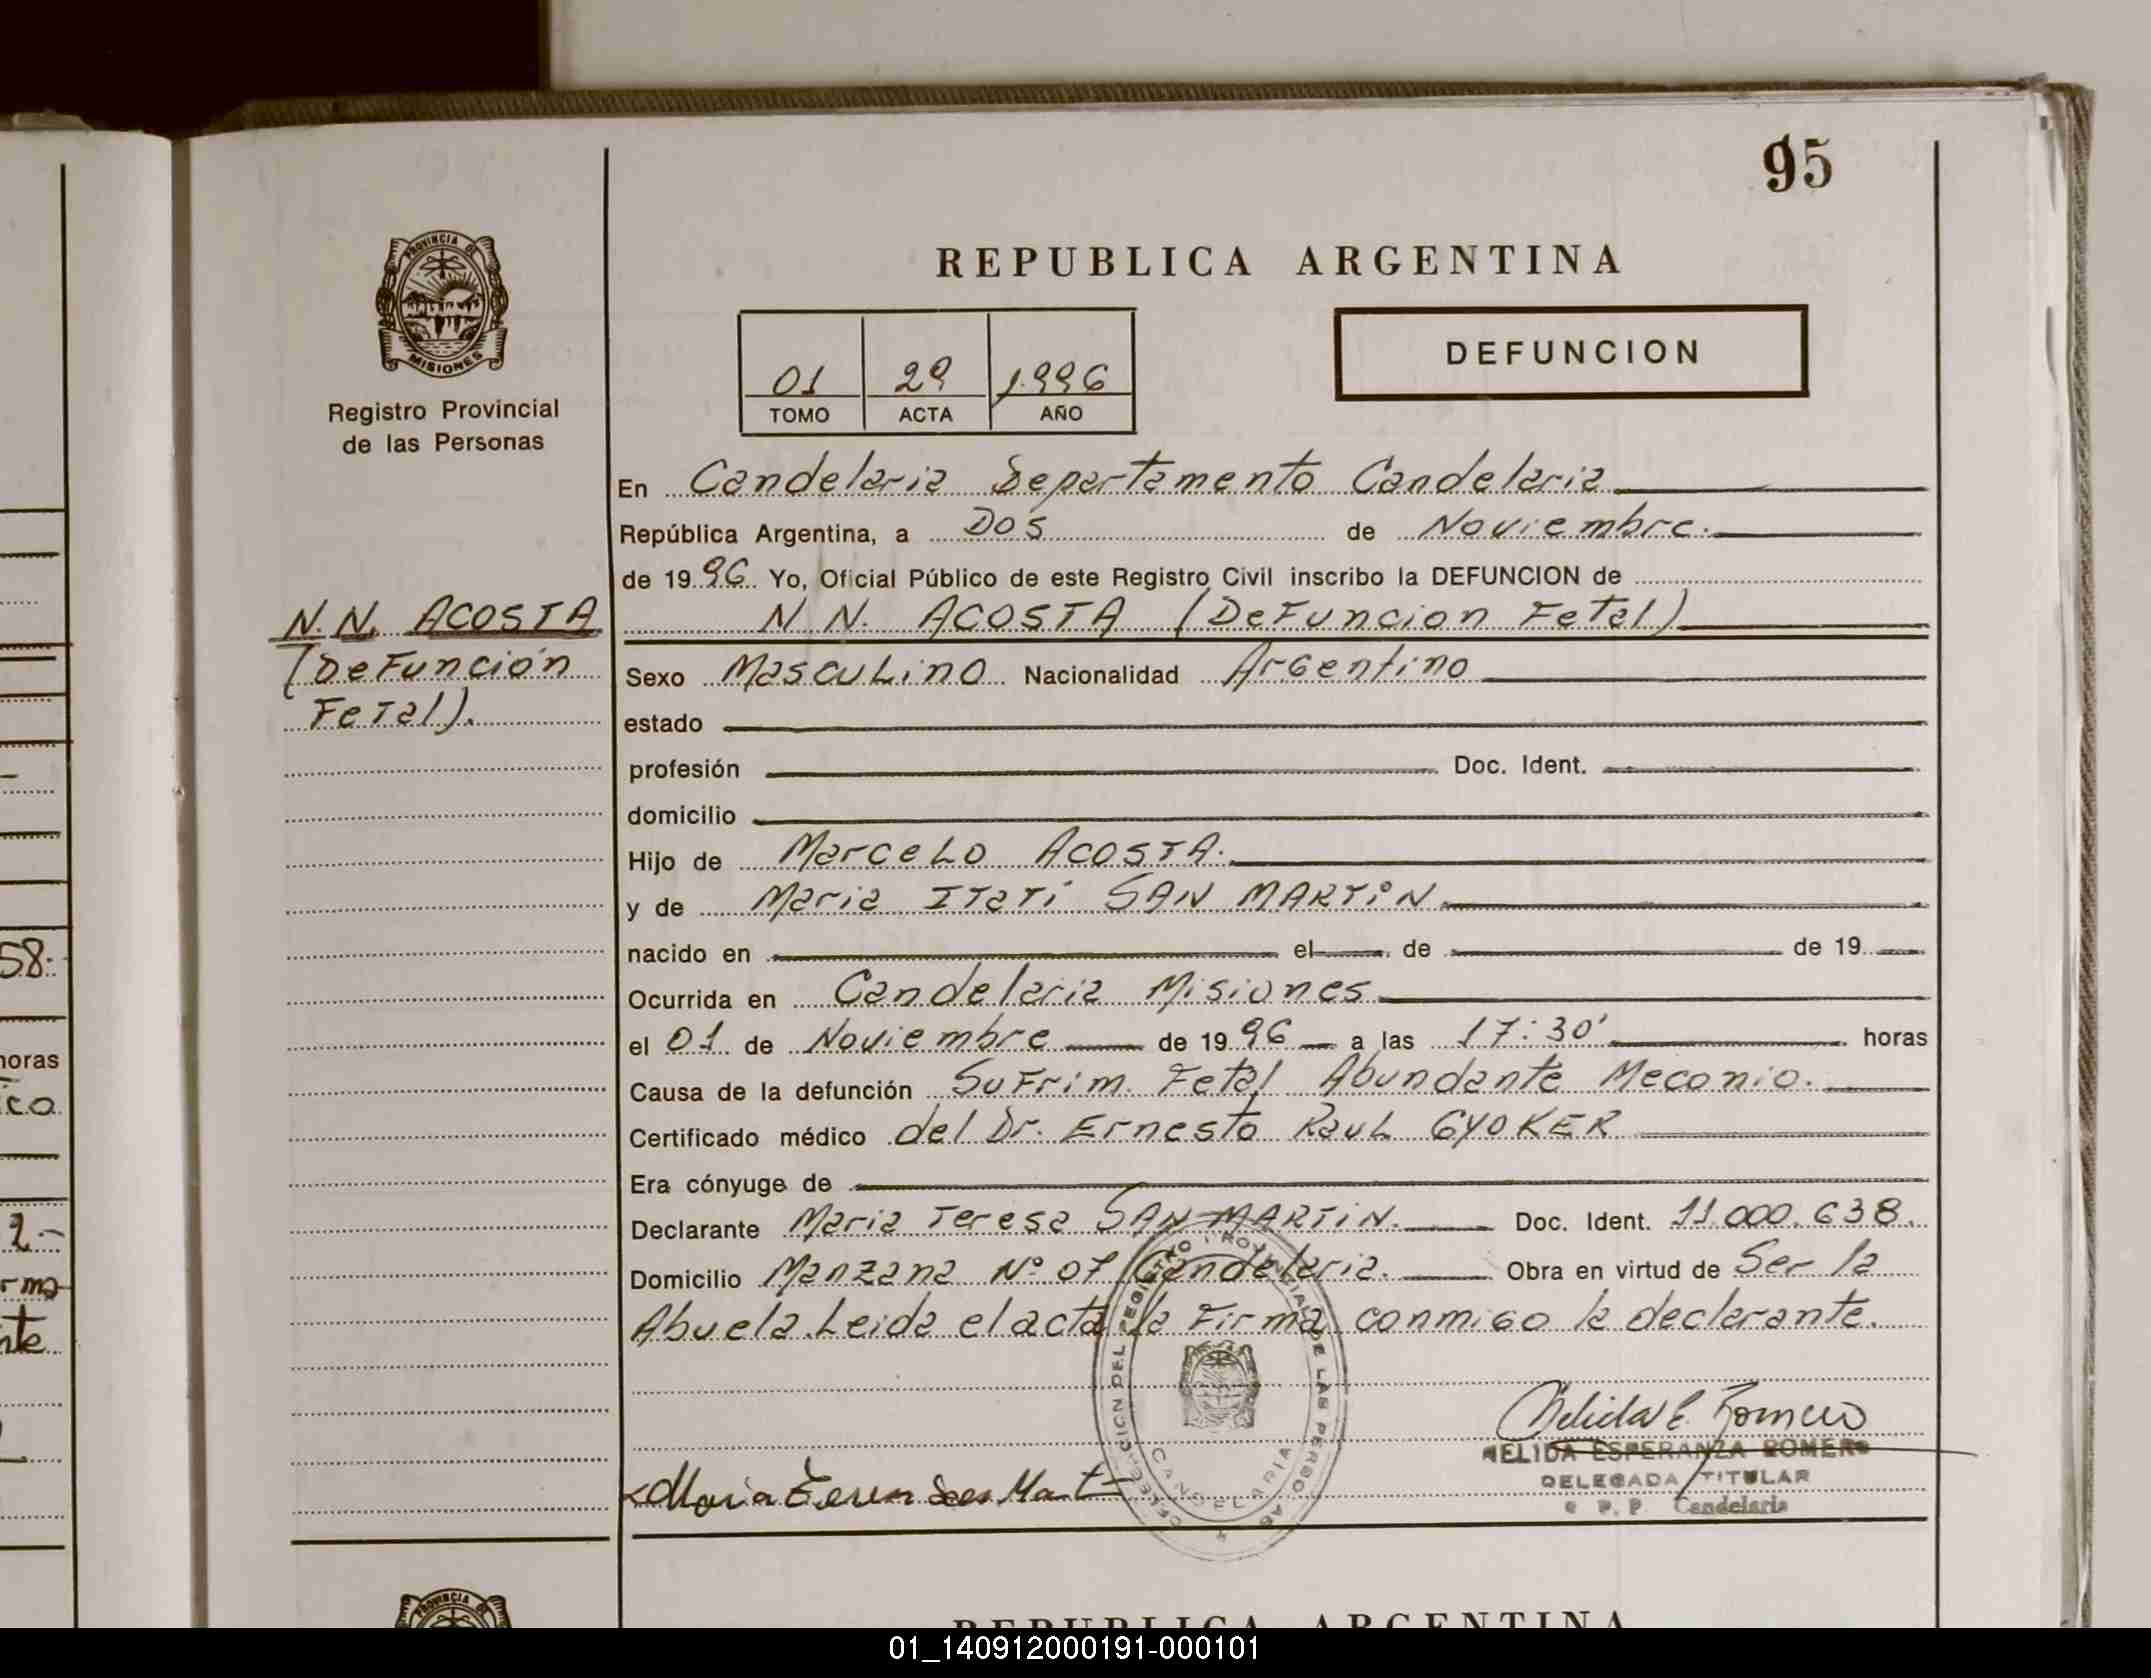 95
PROVINCIA DE
MISIONES
Registro Provincial
de las Personas
REPUBLICA ARGENTINA
01 29 1.996
TOMO ACTA AÑO
DEFUNCION
N.N. ACOSTA
(DeFunción
FeTal).
En Candelaria Departamento Candelaria
República Argentina, a Dos de Noviembre.
de 1996 Yo, Oficial Público de este Registro Civil inscribo la DEFUNCION de
N.N. ACOSTA (DeFuncion Fetal)
Sexo Masculino Nacionalidad Argentino
estado
profesión Doc. Ident.
domicilio
Hijo de Marcelo ACOSTA.
y de Maria ITaTí SAN MARTiN
nacido en el de de 19
Ocurrida en Candelaria Misiones
el 01 de Noviembre de 1996 a las 17:30' horas
Causa de la defunción SuFrim. Fetal Abundante Meconio.
Certificado médico del Dr. Ernesto Raul GYOKER
Era cónyuge de
Declarante Maria Teresa SAN MARTiN. Doc. Ident. 11.000.638.
Domicilio Manzana Nº 07 Candelaria. Obra en virtud de Ser la
Abuela. Leida el acta la Firma conmigo la declarante.
Nelida E. Romero
NELIDA ESPERANZA ROMERO
DELEGADA TITULAR
R. P. P. Candelaria
DEL REGISTRO PROVINCIAL DE LAS PERSONAS
CANDELARIA
58.
horas
ico
2.-
rma
nte
PROVINCIA DE
REPUBLICA ARGENTINA
01_140912000191-000101